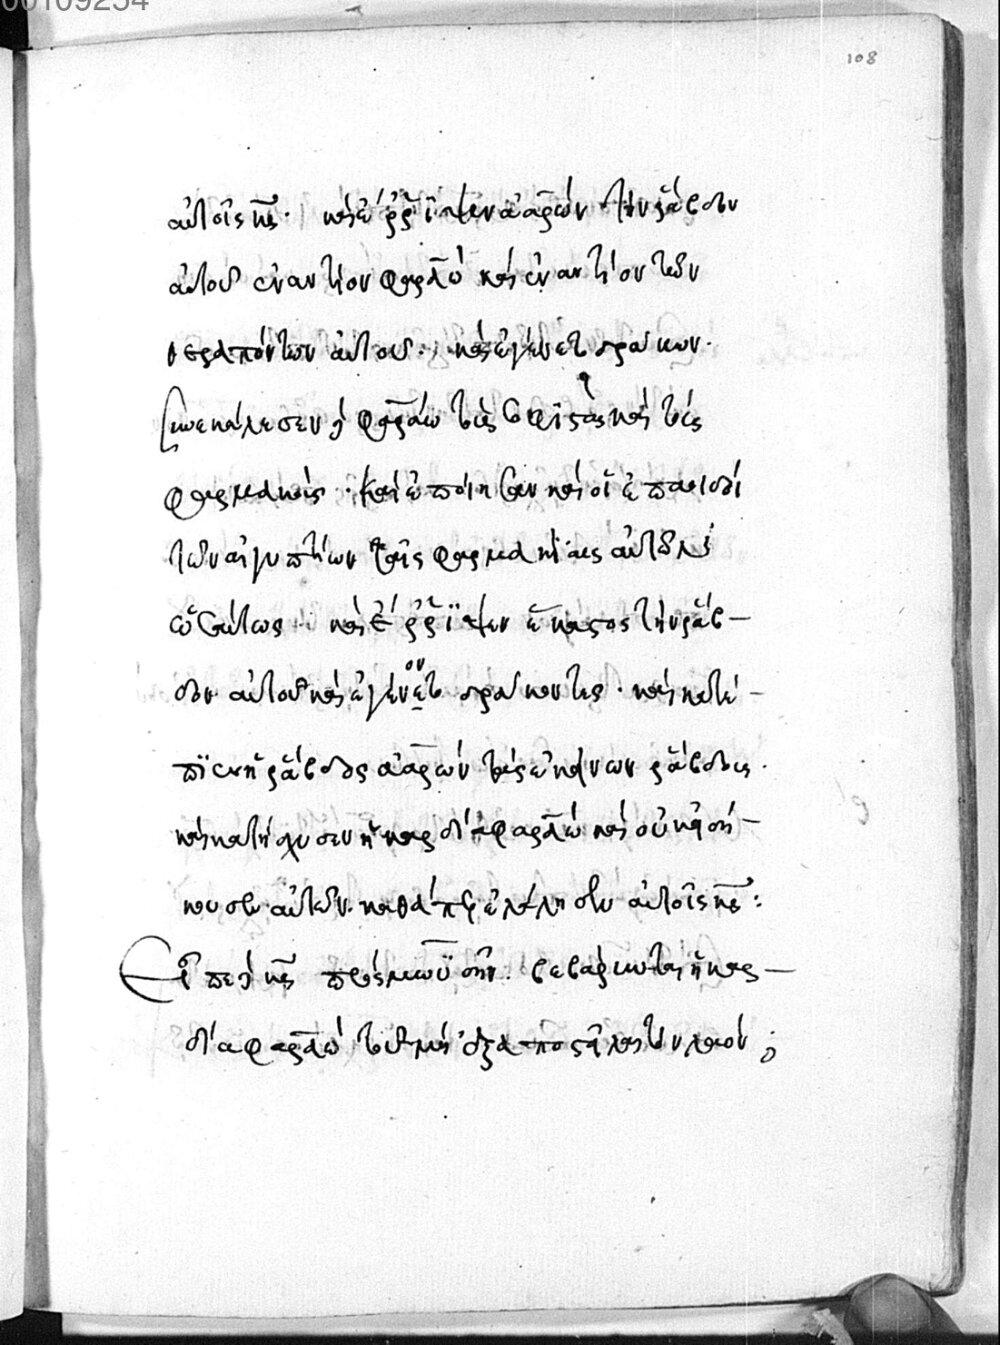 00109254
108
αὐτοῖς κς· καὶ ἔρριψεν ἀαρὼν τὴν ῥάβδον
αὐτοῦ ἐναντίον φαραὼ καὶ ἐναντίον τῶν
θεραπόντων αὐτοῦ· καὶ ἐγένετο δράκων·
Συνεκάλεσεν δὲ φαραὼ τοὺς σοφιστὰς καὶ τοὺς
φαρμακοὺς· καὶ ἐποίησαν καὶ οἱ ἐπαοιδοὶ
τῶν αἰγυπτίων ταῖς φαρμακίαις αὐτῶν
ὡσαύτως· καὶ ἔρριψεν ἕκαστος τὴν ῥάβ–
δον αὐτοῦ καὶ ἐγένετο δράκοντες· καὶ κατέ–
πιεν ἡ ῥάβδος ἀαρὼν τὰς ἐκείνων ῥάβδους·
καὶ κατίσχυσεν ἡ καρδία φαραὼ καὶ οὐκ εἰσή–
κουσεν αὐτῶν· καθάπερ ἐλάλησεν αὐτοῖς κς:
Εἶπε δὲ κς πρὸς μωϋσῆν· βεβάρυνται ἡ καρ–
δία φαραὼ τοῦ μὴ ἐξαποστεῖλαι τὸν λαόν;